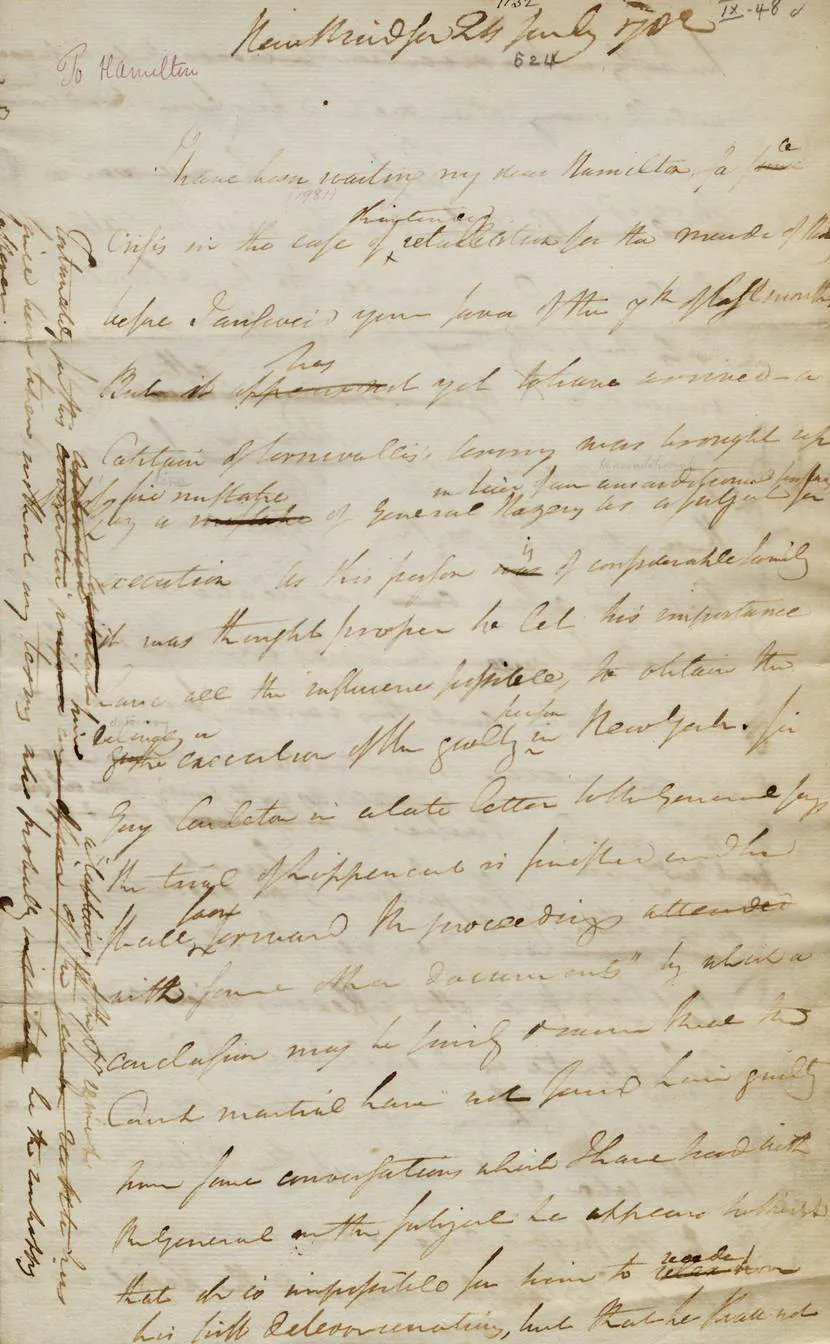 1132
IX-48
New Windsor 24 July 1782
624
To Hamilton
I have been waiting my dear Hamilton for a
(1981)
threatened
Crisis in the case of retaliation for the murder of
before I answered your favor of the 7th of last month
has
But it appears not yet to have arrived – a
Captain of Cornwallis's army was brought up
by a mistake of General Hazens as a subject for
in lieu of an unconditional prisoner
execution as this person was is of considerable family
it was thought proper to let his importance
have all the influence possible, to obtain the
person
execution of the guilty in New York. Sir
Guy Carleton in a late letter to the General says
the trial of Lippencut is finished and he
soon
shall forward the proceedings attended
with some other documents" by which a
conclusion may be fairly drawn that the
Court martial have not found him guilty
from some conversations which I have had with
the General on the subject he appears
that it is impossible for him to recede from
his first determination, but that he shall not
a Captain of the
be the unhappy